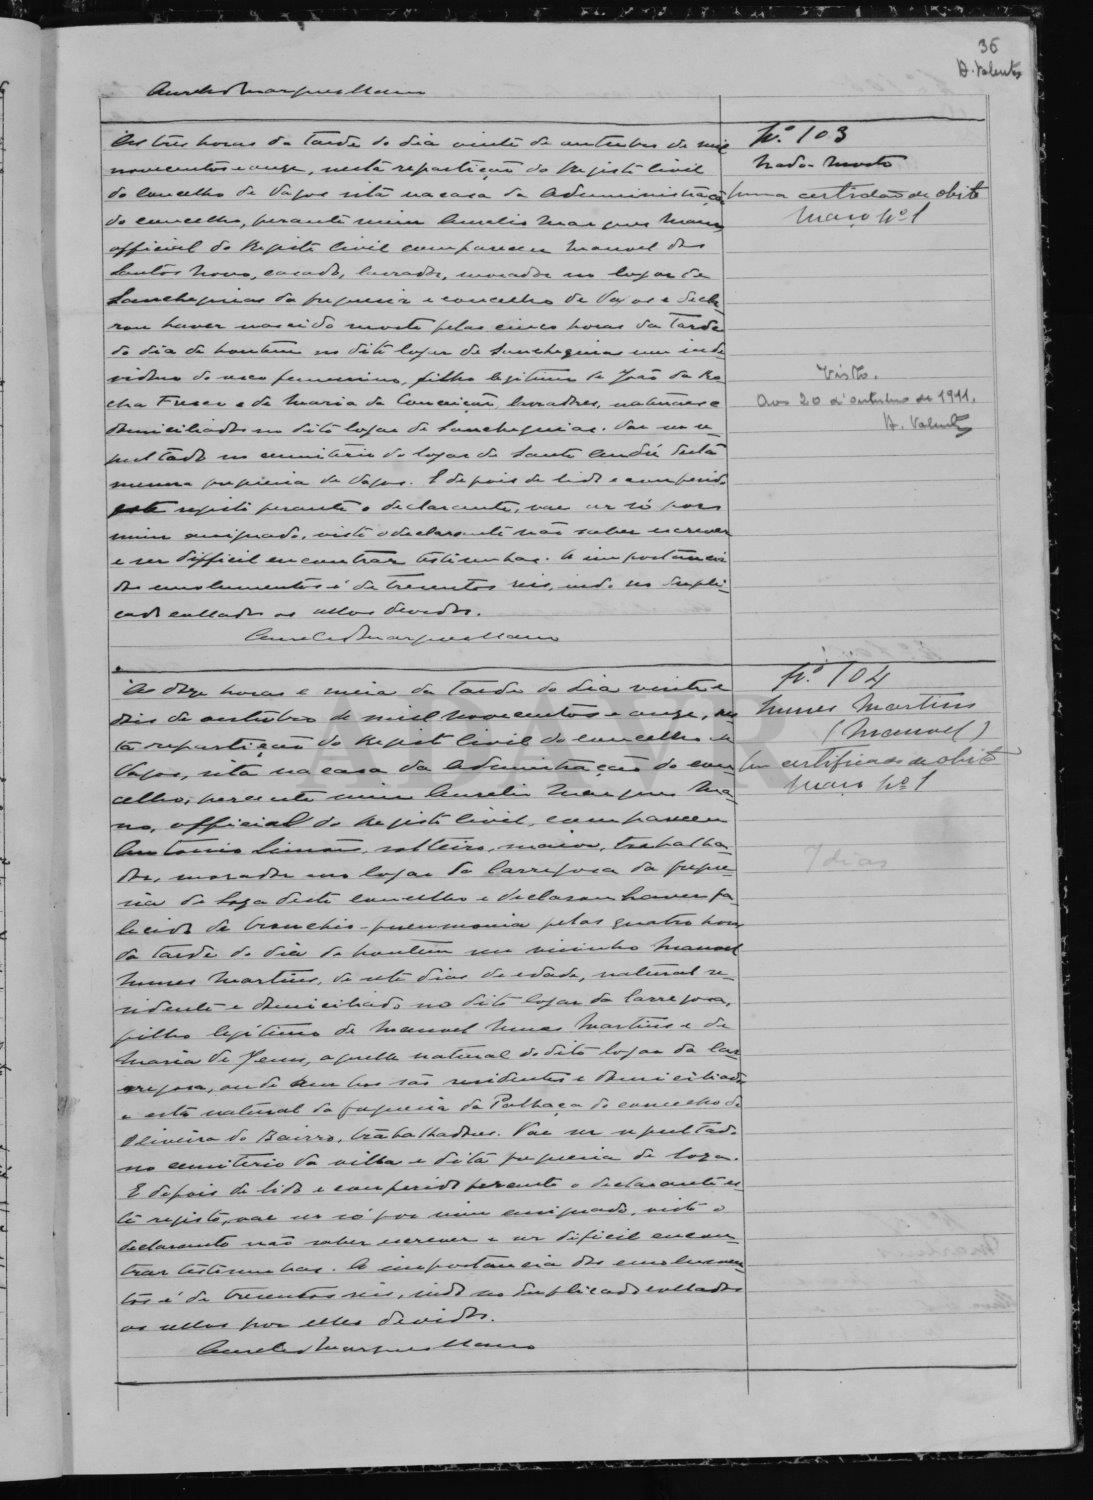 36
A. Valente
Aurelio Marques Mano
Nº 103
Nado-morto
uma certidão de obito
Maço nº 1
Ás tres horas da tarde do dia vinte de outubro de mil
novecentos e onze, nesta repartição do Registo Civil
do concelho de Vagos sita na casa da Administração
do concelho, perante mim Aurelio Marques Mano
official do Registo Civil compareceu Manuel dos
Santos Novo, casado, lavrador, morador no logar de
Sanchequias da freguesia e concelho de Vagos e decla-
rou haver nascido morto pelas cinco horas da tarde
do dia de hontem no dito logar de Sanchequias um indi-
viduo do sexo femenino, filho legitimo de João da Ro-
cha e de Maria da Conceição, lavradores, naturaes e
domiciliados no dito logar de Sanchequias. Vae ser se-
pultado no cemiterio do logar de Santo André desta
mesma freguesia de Vagos. E depois de lido e conferido
este registo perante o declarante, vae ser só por
mim assignado, visto o declarante não saber escrever
e ser difficil encontrar testimunhas. A importancia
dos emolumentos é de trezentos reis, indo no dupli-
cado collados os sellos devidos.
Aurelio Marques Mano
Visto.
Aos 20 d'outubro de 1911.
A. Valente
Nº 104
Nunes Martins
(Manuel)
Um certificado de obito
Maço nº 1
7 dias
Ás doze horas e meia da tarde do dia vinte e
dois de outubro de mil novecentos e onze, nes-
ta repartição do Registo Civil do concelho de
Vagos, sita na casa da Administração do con-
celho, perante mim Aurelio Marques Ma-
no, official do Registo Civil, compareceu
Antonio Simões, solteiro, maior, trabalha-
dor, morador no logar da Carregosa da fregue-
sia de Soza deste concelho e declarou haver fa-
lecido de broncho-pneumonia pelas quatro horas
da tarde do dia de hontem um visinho Manuel
Nunes Martins, de sete dias de edade, natural re-
sidente e domiciliado no dito logar da Carregosa,
filho legitimo de Manuel Nunes Martins e de
Maria de Jesus, aquelle natural do dito logar da Car-
regosa, onde ambos são residentes e domiciliados
e esta natural da freguesia da Palhaça do concelho de
Oliveira do Bairro, trabalhadores. Vae ser sepultado
no cemiterio da villa e dita freguesia de Soza.
E depois de lido e conferido perante o declarante es-
te registo, vae ser só por mim assignado, visto o
declarante não saber escrever e ser dificil encon-
trar testimunhas. A importancia dos emolumen-
tos é de trezentos reis, indo no duplicado collados
os sellos por elles devidos.
Aurelio Marques Mano
ADAVR